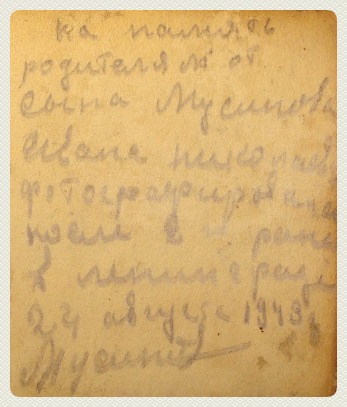 на память
родителям от
сына Мусинова
Ивана Николаев
фотографирован
после 2й ран
в ленинград
24 августа 1943г
Мусинов